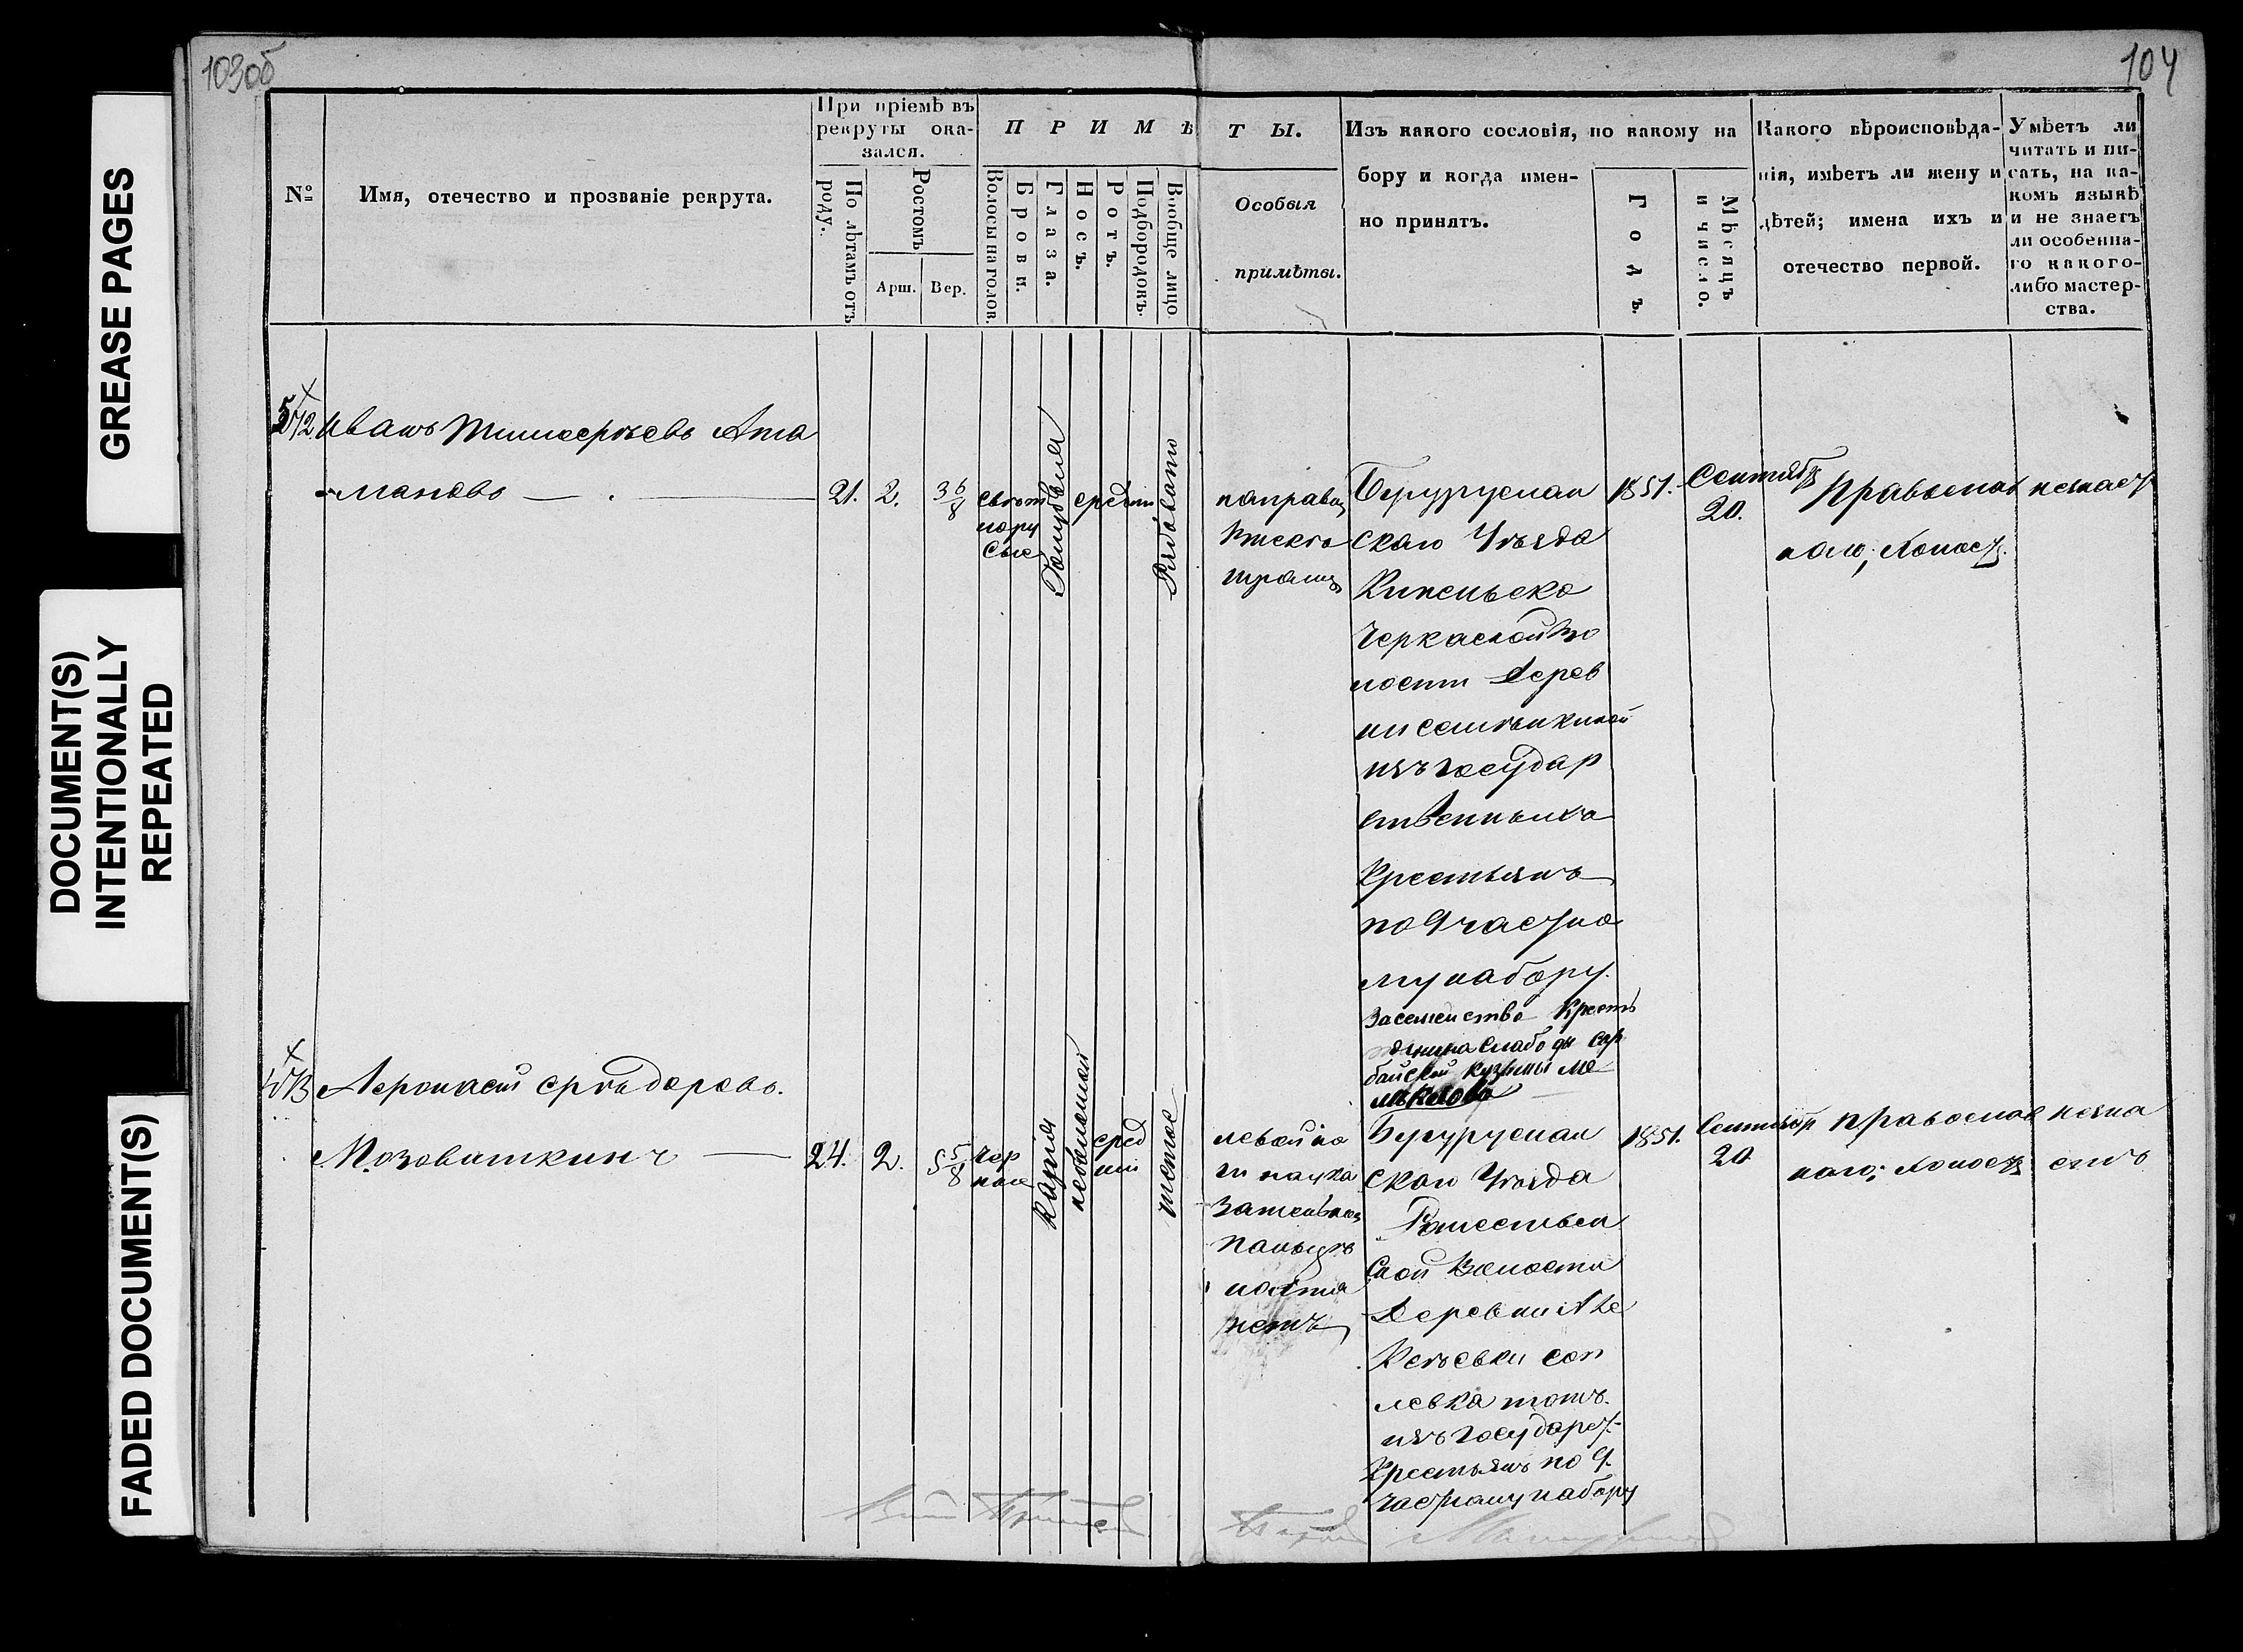 103об
104
GREASE PAGES
DOCUMENT(S)
INTENTIONALLY
REPEATED
FADED DOCUMENT(S)
№
Имя, отечество и прозваніе рекрута.
При пріемѣ въ
рекруты ока-
зался.
По лѣтамъ отъ
роду.
Ростомъ
Арш.
Вер.
ПРИМѢ
Волосы на голов.
Брови.
Глаза.
Носъ.
Ротъ.
Подбородокъ.
Вообще лицо
ТЫ.
Особыя
примѣты.
Изъ какого сословія, по какому на
бору и когда имен-
но принятъ.
Годъ.
Мѣсяцъ
и число.
Какого вѣроисповѣда-
нія, имѣетъ ли жену и
дѣтей; имена ихъ и
отечество первой.
Умѣетъ ли
читать и пи-
сать, на ка-
комъ языкѣ
и не знаетъ
ли особенна-
го какого-
либо мастер-
ства.
572
Иванъ Тимоѳѣевъ Ата
мановъ
21.
2.
3 6/8
свѣт
лору
сые
Голубыя
средній
Рябовато
Бугурусман
скаго Уѣзда
Кинельско
Черкаской Во
лости Дерев
ни Семѣнкиной
изъ государ
ственныхъ
Крестьянъ
по 9 частно
му набору.
За семейство Кресть
янина Слабоды Сар
байской Кузьмы Ме
1851.
Сентябр
20.
Православ
наго, холост.
незнает
573
Аѳонасій Ѳѣдоровъ
Мозоваткинъ
24.
2.
5 5/8
Чер
ные
Карія
небольшой
сред
ній
чистое
левой но
ги
палецъ
нетъ
Бугуруслан
скаго Уѣзда
ской Волости
Деревни Але
ксѣевки
тотъ
изъ государст.
Крестьянъ по 9.
частному набору
1851.
Сентябр
20
Православ
наго; холост
незна
етъ